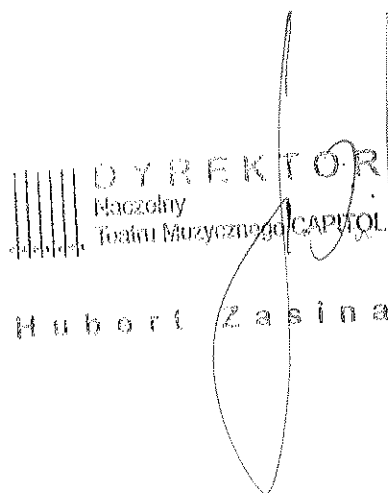 DYREKTOR
Naczelny
Teatru Muzycznego CAPITOL
Hubert Zasina